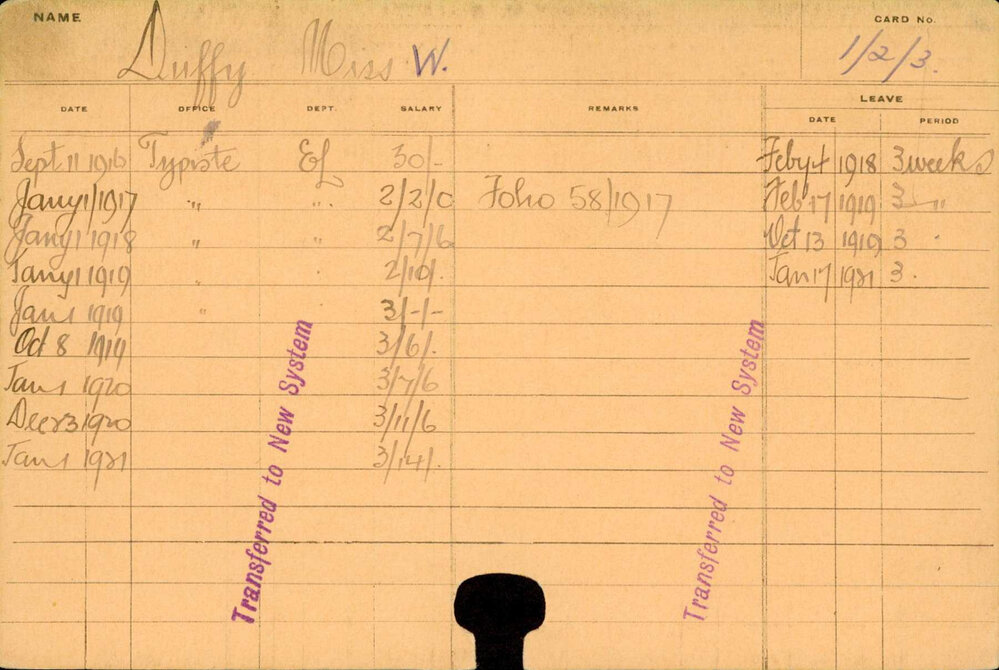 NAME Duffy Miss W. CARD No. 1/2/3.
DATE OFFICE DEPT. SALARY REMARKS LEAVE
DATE PERIOD
Sept 11 1916 Typiste Ef 30/- Feby 4 1918 3 weeks
Jany 1/1917 " " 2/2/0 Folio 58/1917 Feb 17 1919 3 "
Jany 1 1918 " " 2/7/6 Oct 13 1919 3 "
Jany 1 1919 " " 2/10/. Jan 17 1921 3.
Jan 1 1919 " 3/-/-
Oct 8 1919 3/6/.
Jan 1 1920 3/7/6
Decr 3 1920 3/11/6
Jan 1 1921 3/14/.
Transferred to New System
Transferred to New System